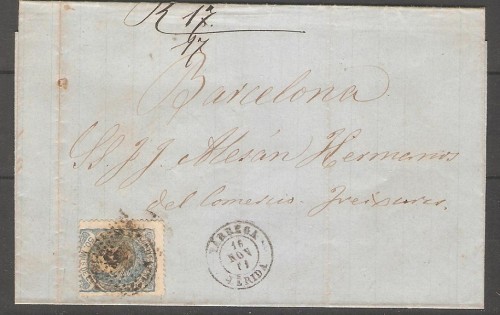 R 17.
17
Barcelona
SS. J. J. Alesán Hermanos
del Comercio.
TARREGA
16
NOV
71
LERIDA